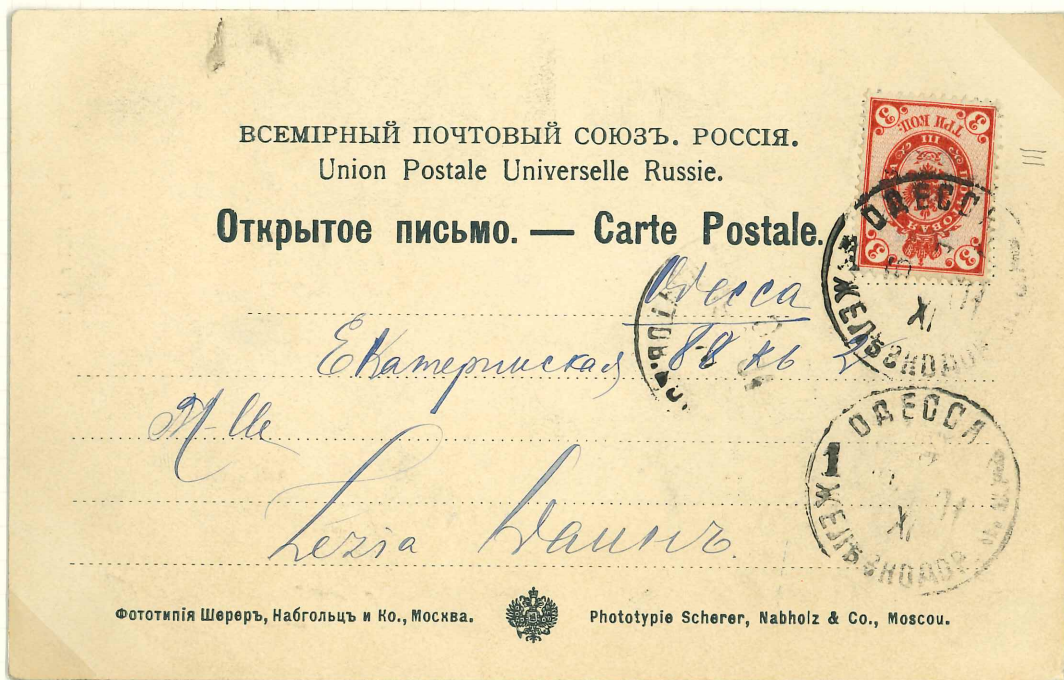 ВСЕМІРНЫЙ ПОЧТОВЫЙ СОЮЗЪ. РОССІЯ.
Union Postale Universelle Russie.
Открытое письмо. — Carte Postale.
3 ТРИ КОП. 3
3 3
ОДЕССА
XI
Одесса
Екатеринская 88 кв 2
M-lle
Lezia
ОДЕССА
1
XI
Фототипія Шереръ, Набгольцъ и Ко., Москва.
Phototypie Scherer, Nabholz & Co., Moscou.